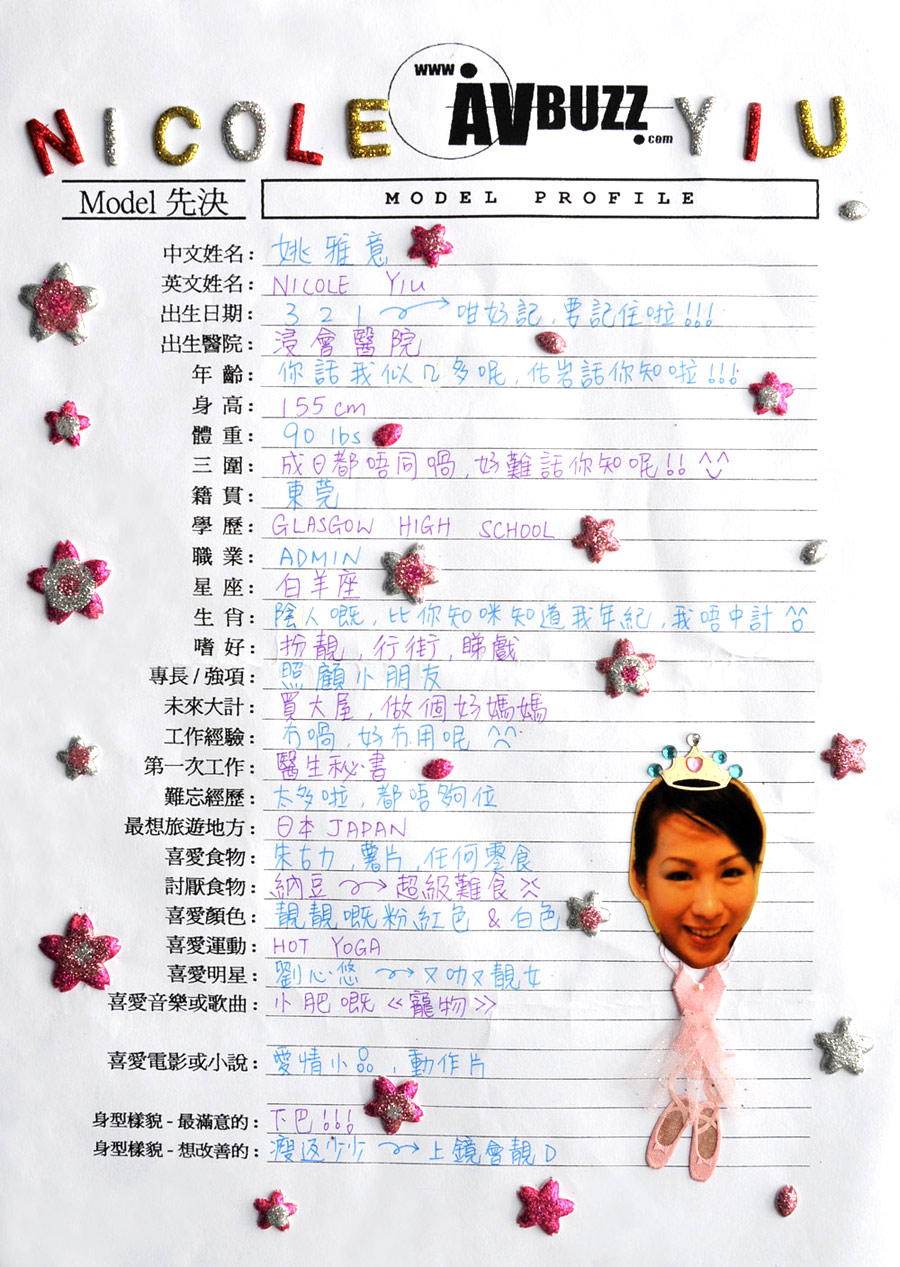 WWW.
AVBUZZ.com
NICOLE YIU
Model 先決 MODEL PROFILE
中文姓名: 姚雅意
英文姓名: NICOLE YIU
出生日期: 3 2 1 咁好記,要記住啦!!!
出生醫院: 浸會醫院
年齡: 你話我似几多呢,估岩話你知啦!!!
身高: 155 cm
體重: 90 lbs
三圍: 成日都唔同喎,好難話你知呢!! ^◡^
籍貫: 東莞
學歷: GLASGOW HIGH SCHOOL
職業: ADMIN
星座: 白羊座
生肖: 陰人嘅,比你知咪知道我年紀,我唔中計 ^o^
嗜好: 扮靚,行街,睇戲
專長/強項: 照顧小朋友
未來大計: 買大屋,做個好媽媽
工作經驗: 冇喎,好冇用呢 ^^
第一次工作: 醫生秘書
難忘經歷: 太多啦,都唔夠位
最想旅遊地方: 日本 JAPAN
喜愛食物: 朱古力,薯片,任何零食
討厭食物: 納豆 → 超級難食
喜愛顏色: 靚靚嘅粉紅色 & 白色
喜愛運動: HOT YOGA
喜愛明星: 劉心悠 → 又叻又靚女
喜愛音樂或歌曲: 小肥嘅《寵物》
喜愛電影或小說: 愛情小品,動作片
身型樣貌 - 最滿意的: 下巴!!!
身型樣貌 - 想改善的: 瘦返少少 → 上鏡會靚D